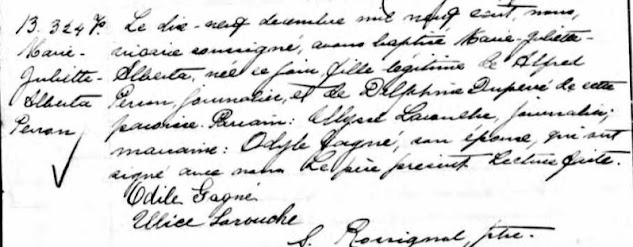 B. 324
Marie-
Juliette-
Alberta
Perron
Le dix-neuf decembre mil neuf cent, nous,
vicaire soussigné, avons baptisé Marie-Juliette-
Alberta, née ce jour, fille légitime de Alfred
Perron, journalier, et de Delphine Dupéré de cette
paroisse. Parrain: Ulysse Larouche, journalier;
marraine: Odyle Gagné, son épouse, qui ont
signé avec nous. Le père présent. Lecture faite.
Odile Gagné
Ulice Larouche
S. Rossignol, ptre.